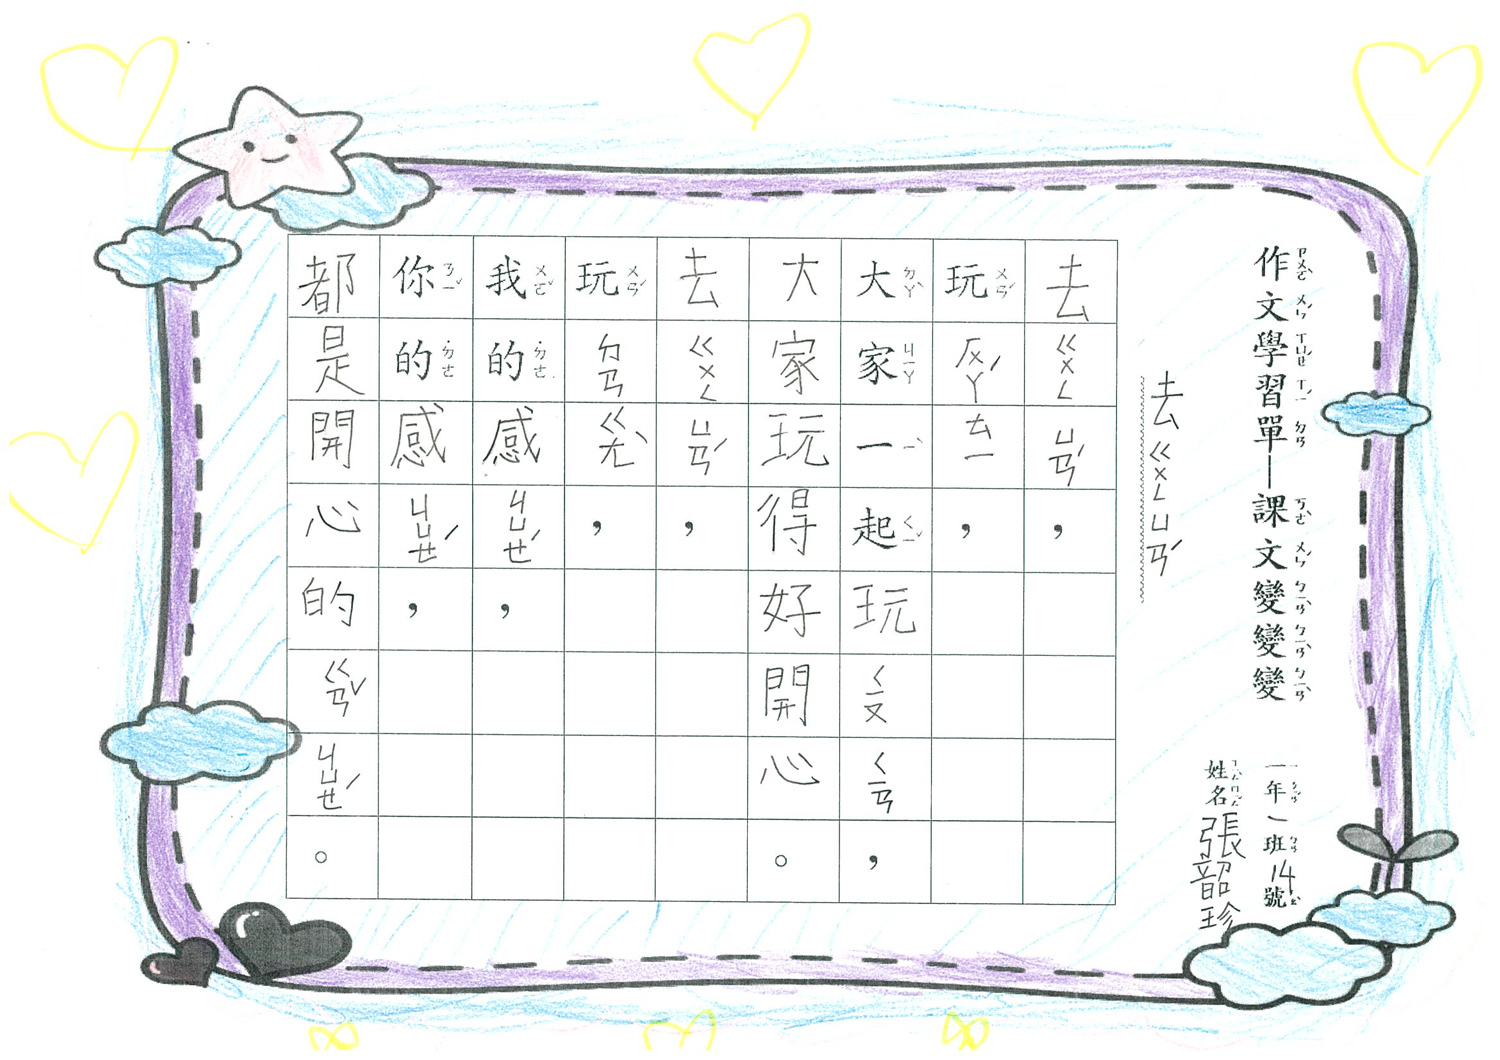 作文學習單—課文變變變
一年一班14號
姓名張韶珍
去ㄍㄨㄥㄩㄢˊ
去ㄍㄨㄥㄩㄢˊ，
玩ㄏㄨㄚˊㄊㄧ，
大家一起玩ㄑㄧㄡㄑㄧㄢ，
大家玩得好開心。
去ㄍㄨㄥㄩㄢˊ，
玩ㄉㄢㄍㄤˋ，
我的感ㄐㄩㄝˊ，
你的感ㄐㄩㄝˊ，
都是開心的ㄍㄢˇㄐㄩㄝˊ。